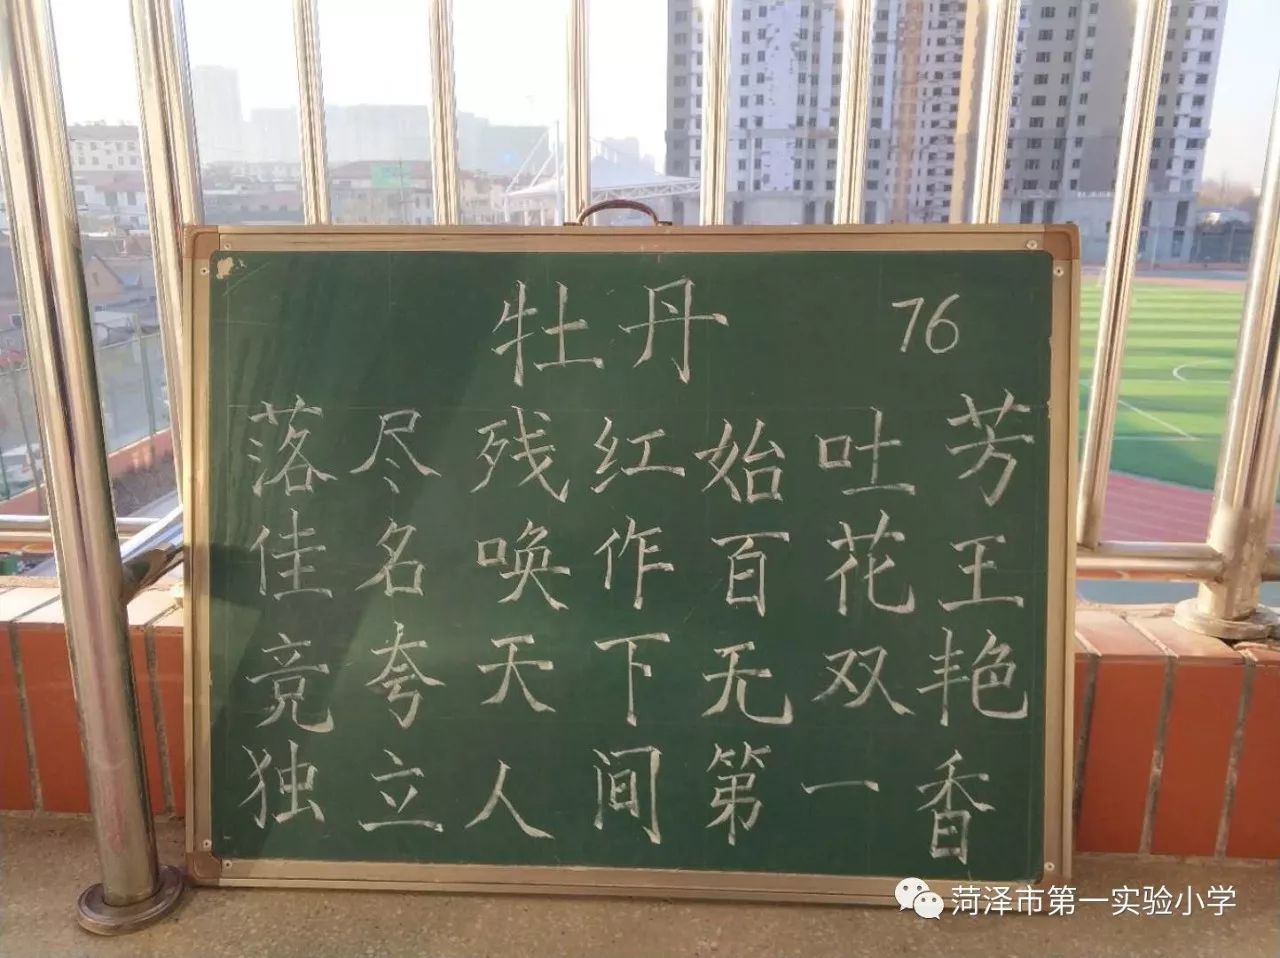 牡丹 76
落尽残红始吐芳
佳名唤作百花王
竞夸天下无双艳
独立人间第一香
菏泽市第一实验小学